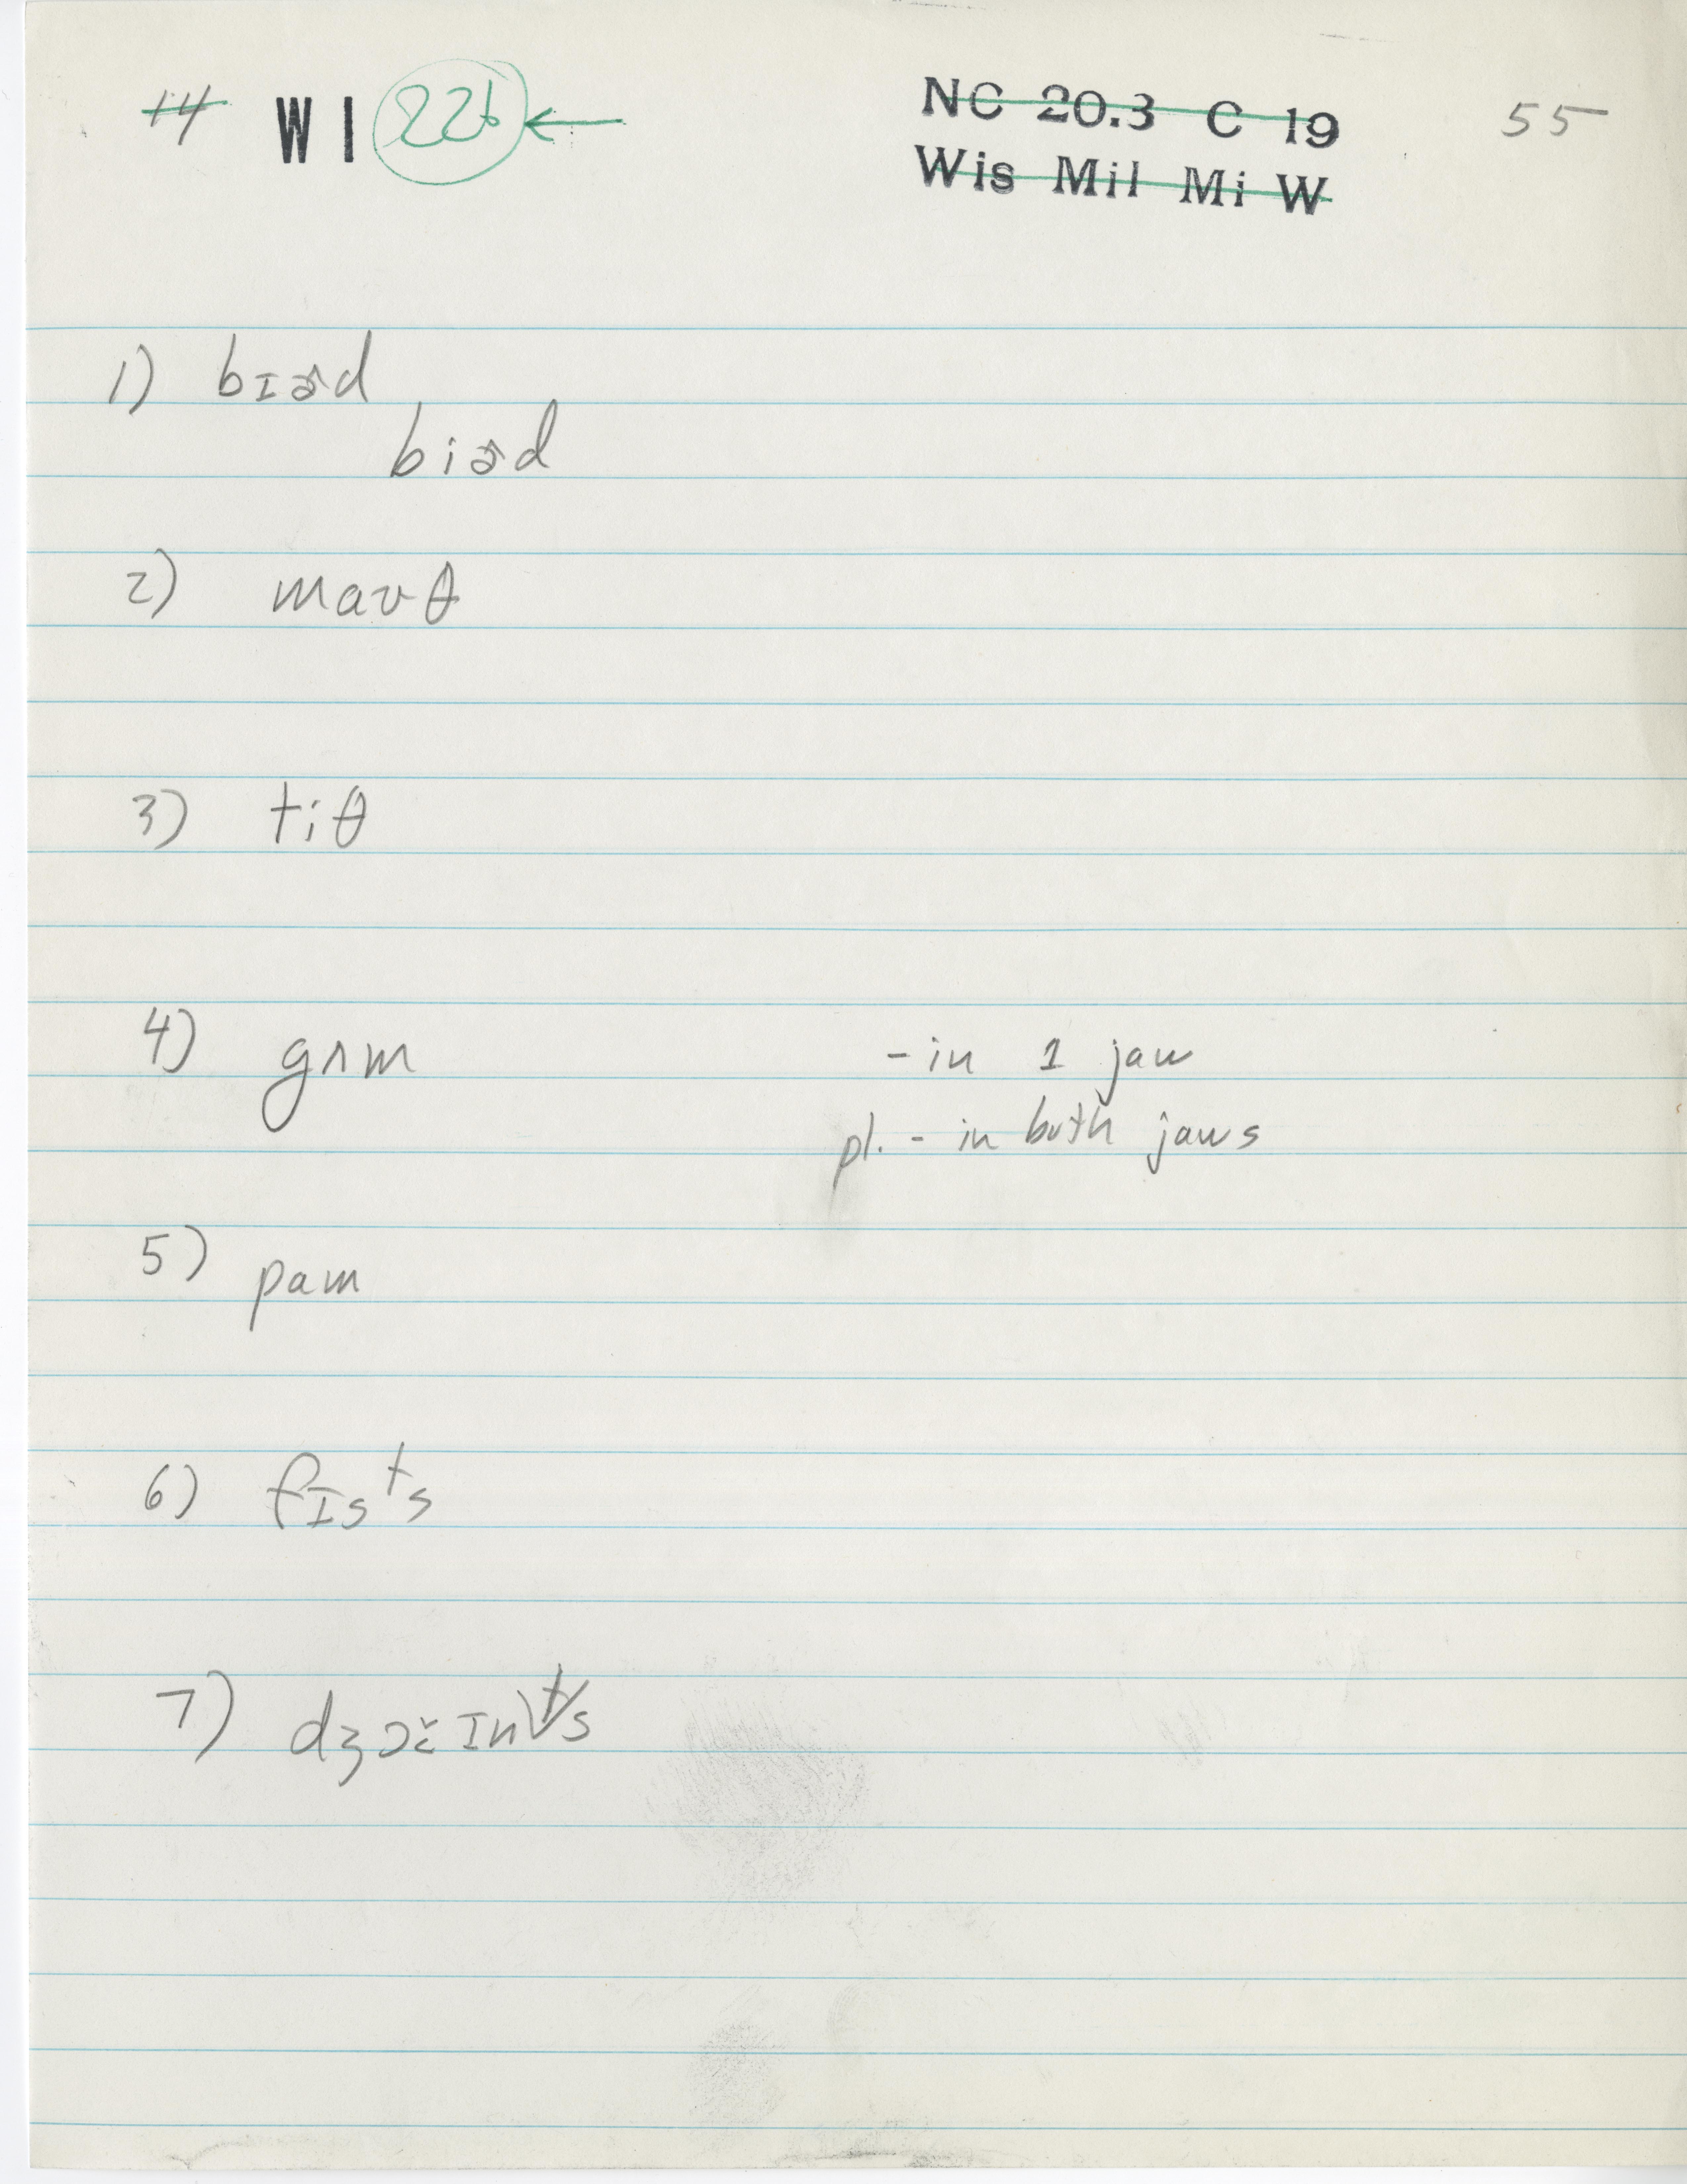 14 WI 226 ← NC 20.3 C 19 55
Wis Mil Mi W
1) bɪɚd
biɚd
2) maʊθ
3) tiθ
4) gʌm - in 1 jaw
pl. - in both jaws
5) pam
6) fɪsᵗs
7) dʒɔɪ̆ɪnᵗs